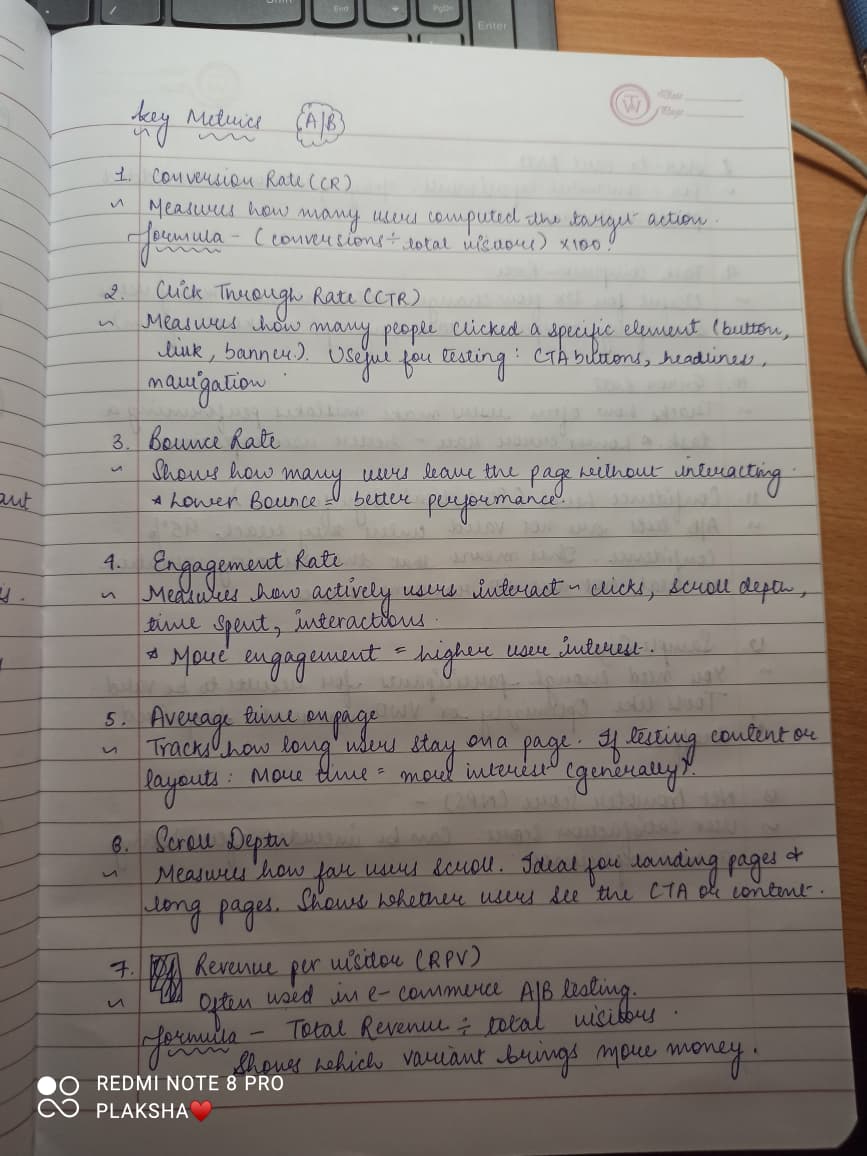 End
PgDn
Enter
Key Metrics A/B
Date
Page
1. Conversion Rate (CR)
~ Measures how many users computed the target action.
formula - (conversions ÷ total visitors) x100.
2. Click Through Rate (CTR)
~ Measures how many people clicked a specific element (button,
link, banner). Useful for testing: CTA buttons, headlines,
navigation
3. Bounce Rate
~ Shows how many users leave the page without interacting.
* Lower Bounce = better performance.
4. Engagement Rate
~ Measures how actively users interact ~ clicks, scroll depth,
time spent, interactions.
* More engagement = higher user interest.
5. Average time on page
~ Tracks how long users stay on a page. If testing content or
layouts: More time = more interest (generally).
6. Scroll Depth
~ Measures how far users scroll. Ideal for landing pages &
long pages. Shows whether users see the CTA or content.
7. Revenue per visitor (RPV)
~ Often used in e-commerce A|B testing.
formula - Total Revenue ÷ total visitors.
Shows which variant brings more money.
REDMI NOTE 8 PRO
PLAKSHA❤️